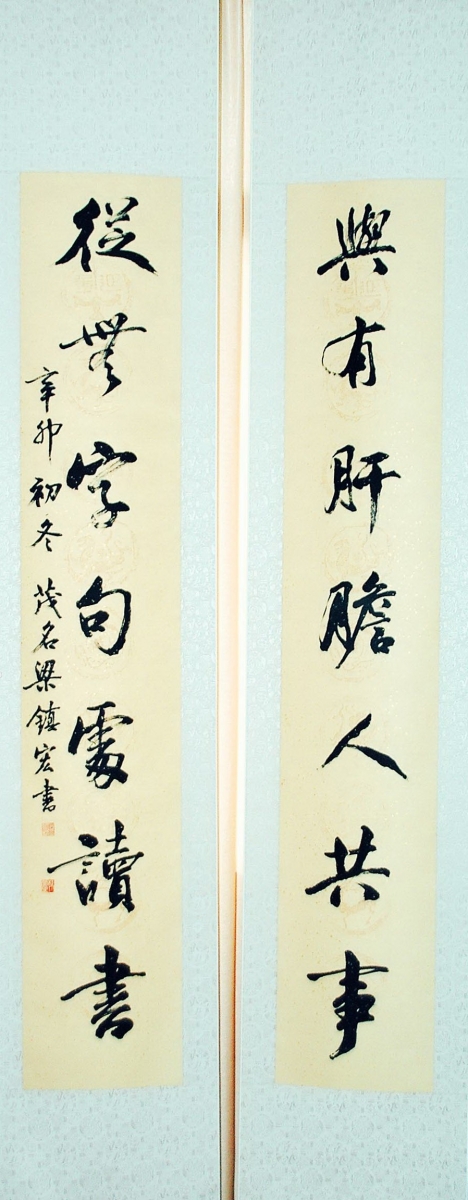 與有肝膽人共事
從無字句處讀書
辛卯初冬 茂名梁鎮宏書